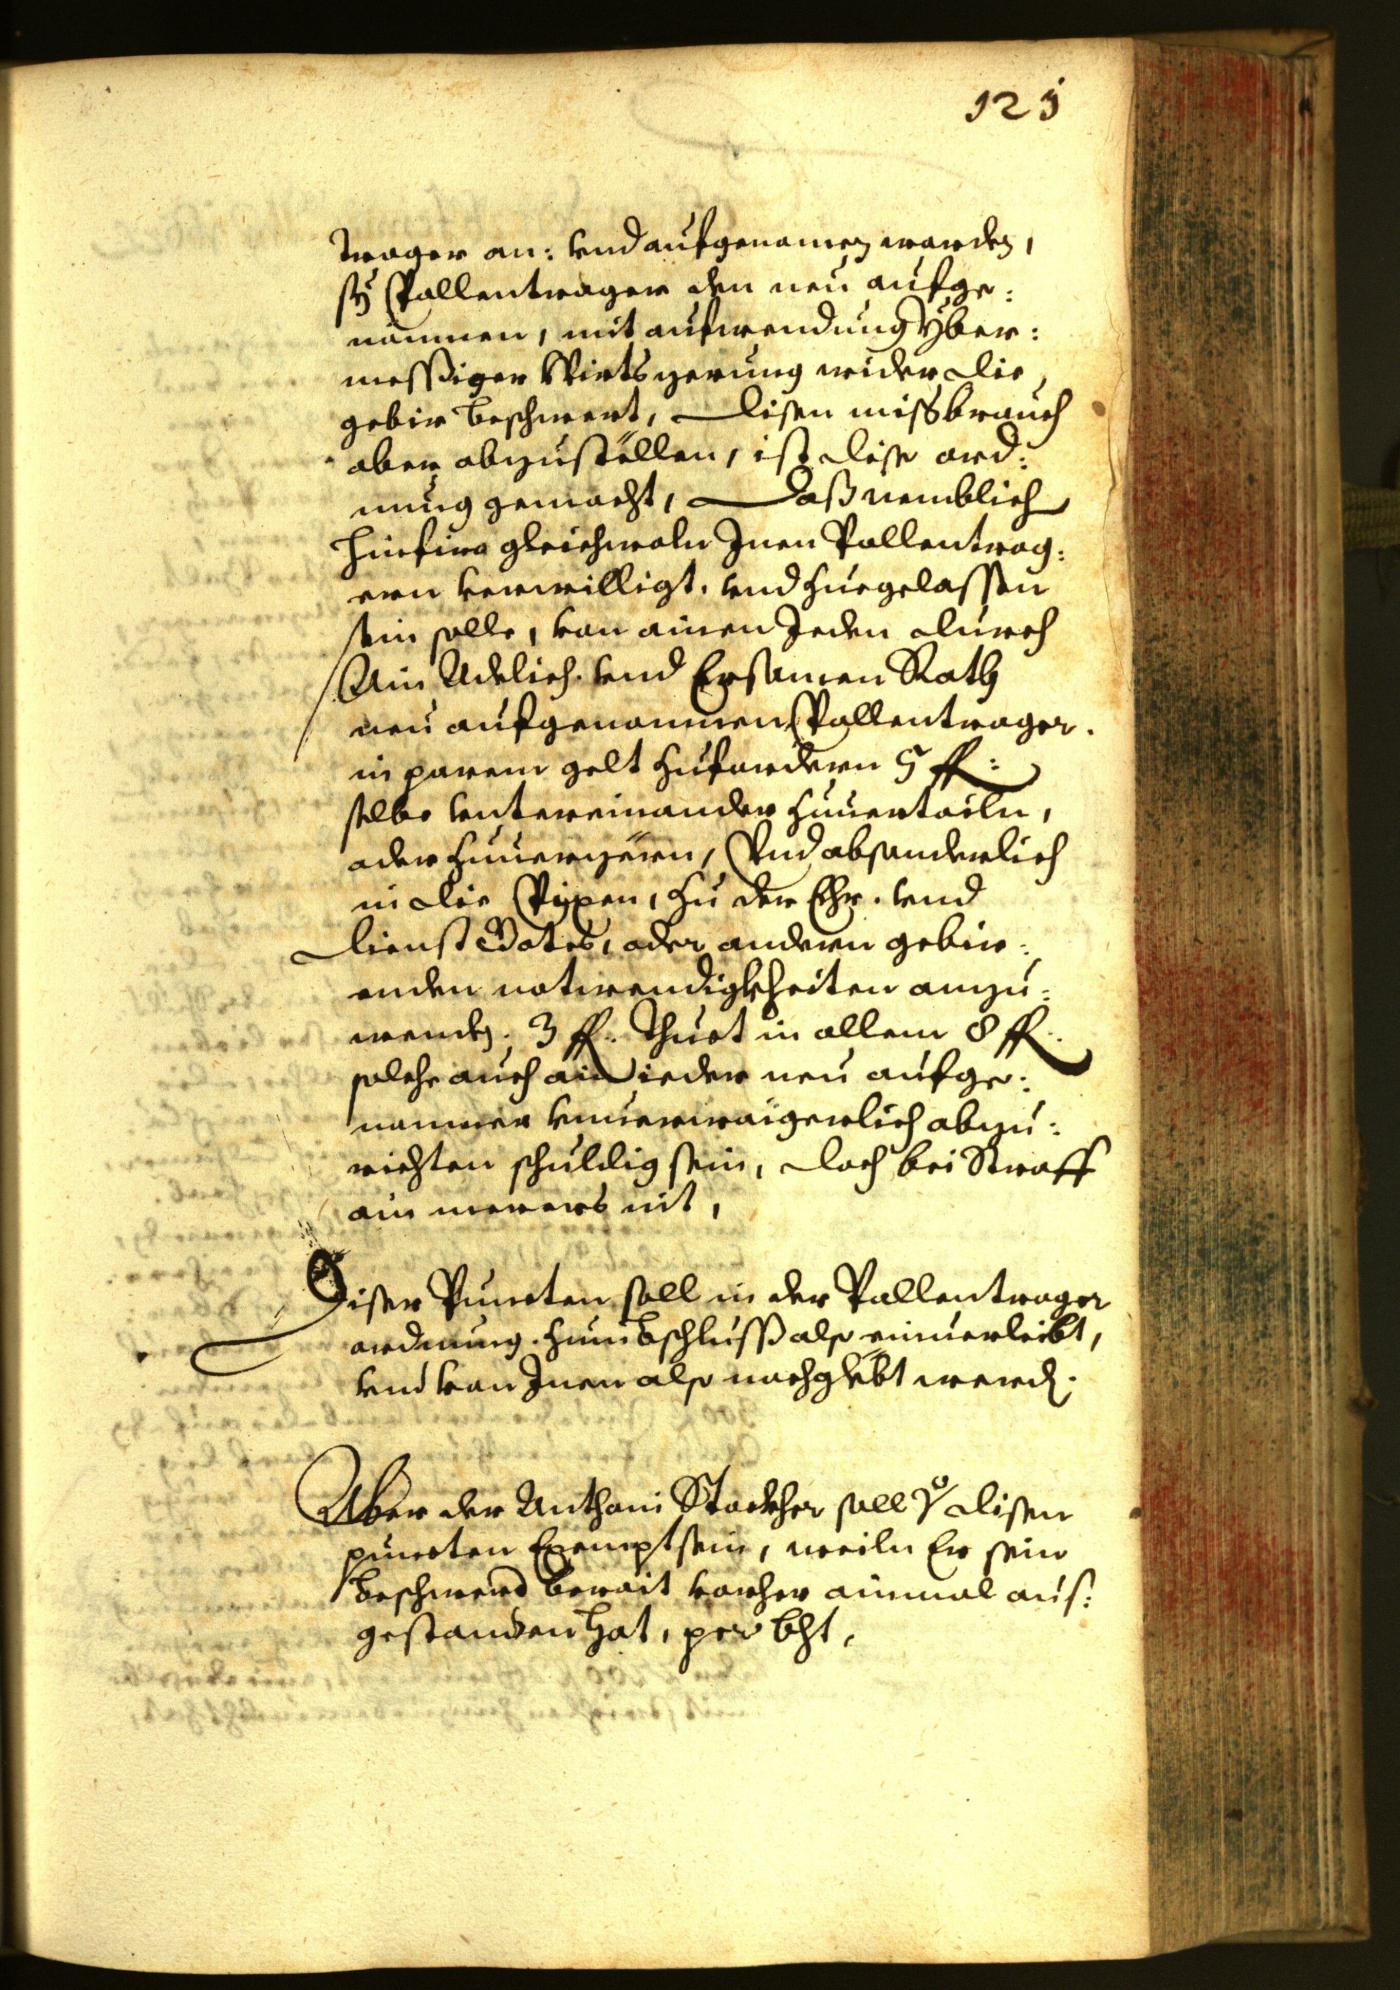 121
trager an: vnd aufgenomen worden,
sÿ Pallentrager den neu aufge:
nomnen, mit aufwendung yber:
messiger Wirtszerung wider die
gebir beschwert, disen missbrauch
aber abzustellen, ist dise ord:
nung gemacht, Daß nemblich
hinfiro gleichwoln Inen Pallentrag:
ern verwilligt. vnd zuegelassen
sein solle, von ainen Jeden durch
Ain Adelich. vnd Ersamen Rath
neu aufgenomnen Pallentrager.
in parem gelt zufordern 5 fl:
selbe vntereinander zuuertailn,
oder zuuerzern, Vnd absonderlich
in die Pixen, zu der Ehr. vnd
dienst Gotes, oder andern gebir:
enden notwendigkheiten anzu:
wenden. 3 fl. Thuet in allem 8 fl.
solche auch ain ieder neu aufge:
nomner vnuerwaigerlich abzu:
richten schuldig sein, doch bei Straff
ain merers nit,
Diser Puncten soll in der Pallentrager
ordnung. zum bschluss also einuerleibt,
vnd von Inen also nachglebt werden.
Aber der Anthoni Stockher soll disen
puncten Exempt sein, weiln Er sein
beschwerd berait vorher ainmal aus:
gestanden hat, per bht,